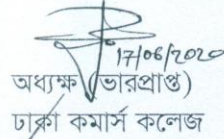 17/06/2020
অধ্যক্ষ (ভারপ্রাপ্ত)
ঢাকা কমার্স কলেজ